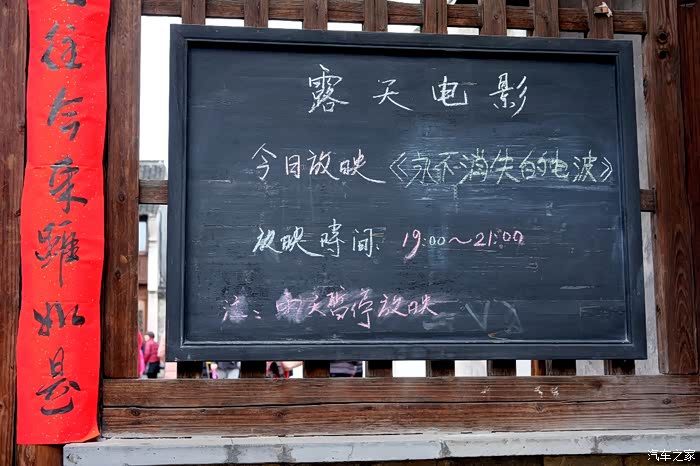 往今来雖如是
露天电影
今日放映《永不消失的电波》
放映時间
19:00～21:00
注：雨天暂停放映
汽车之家